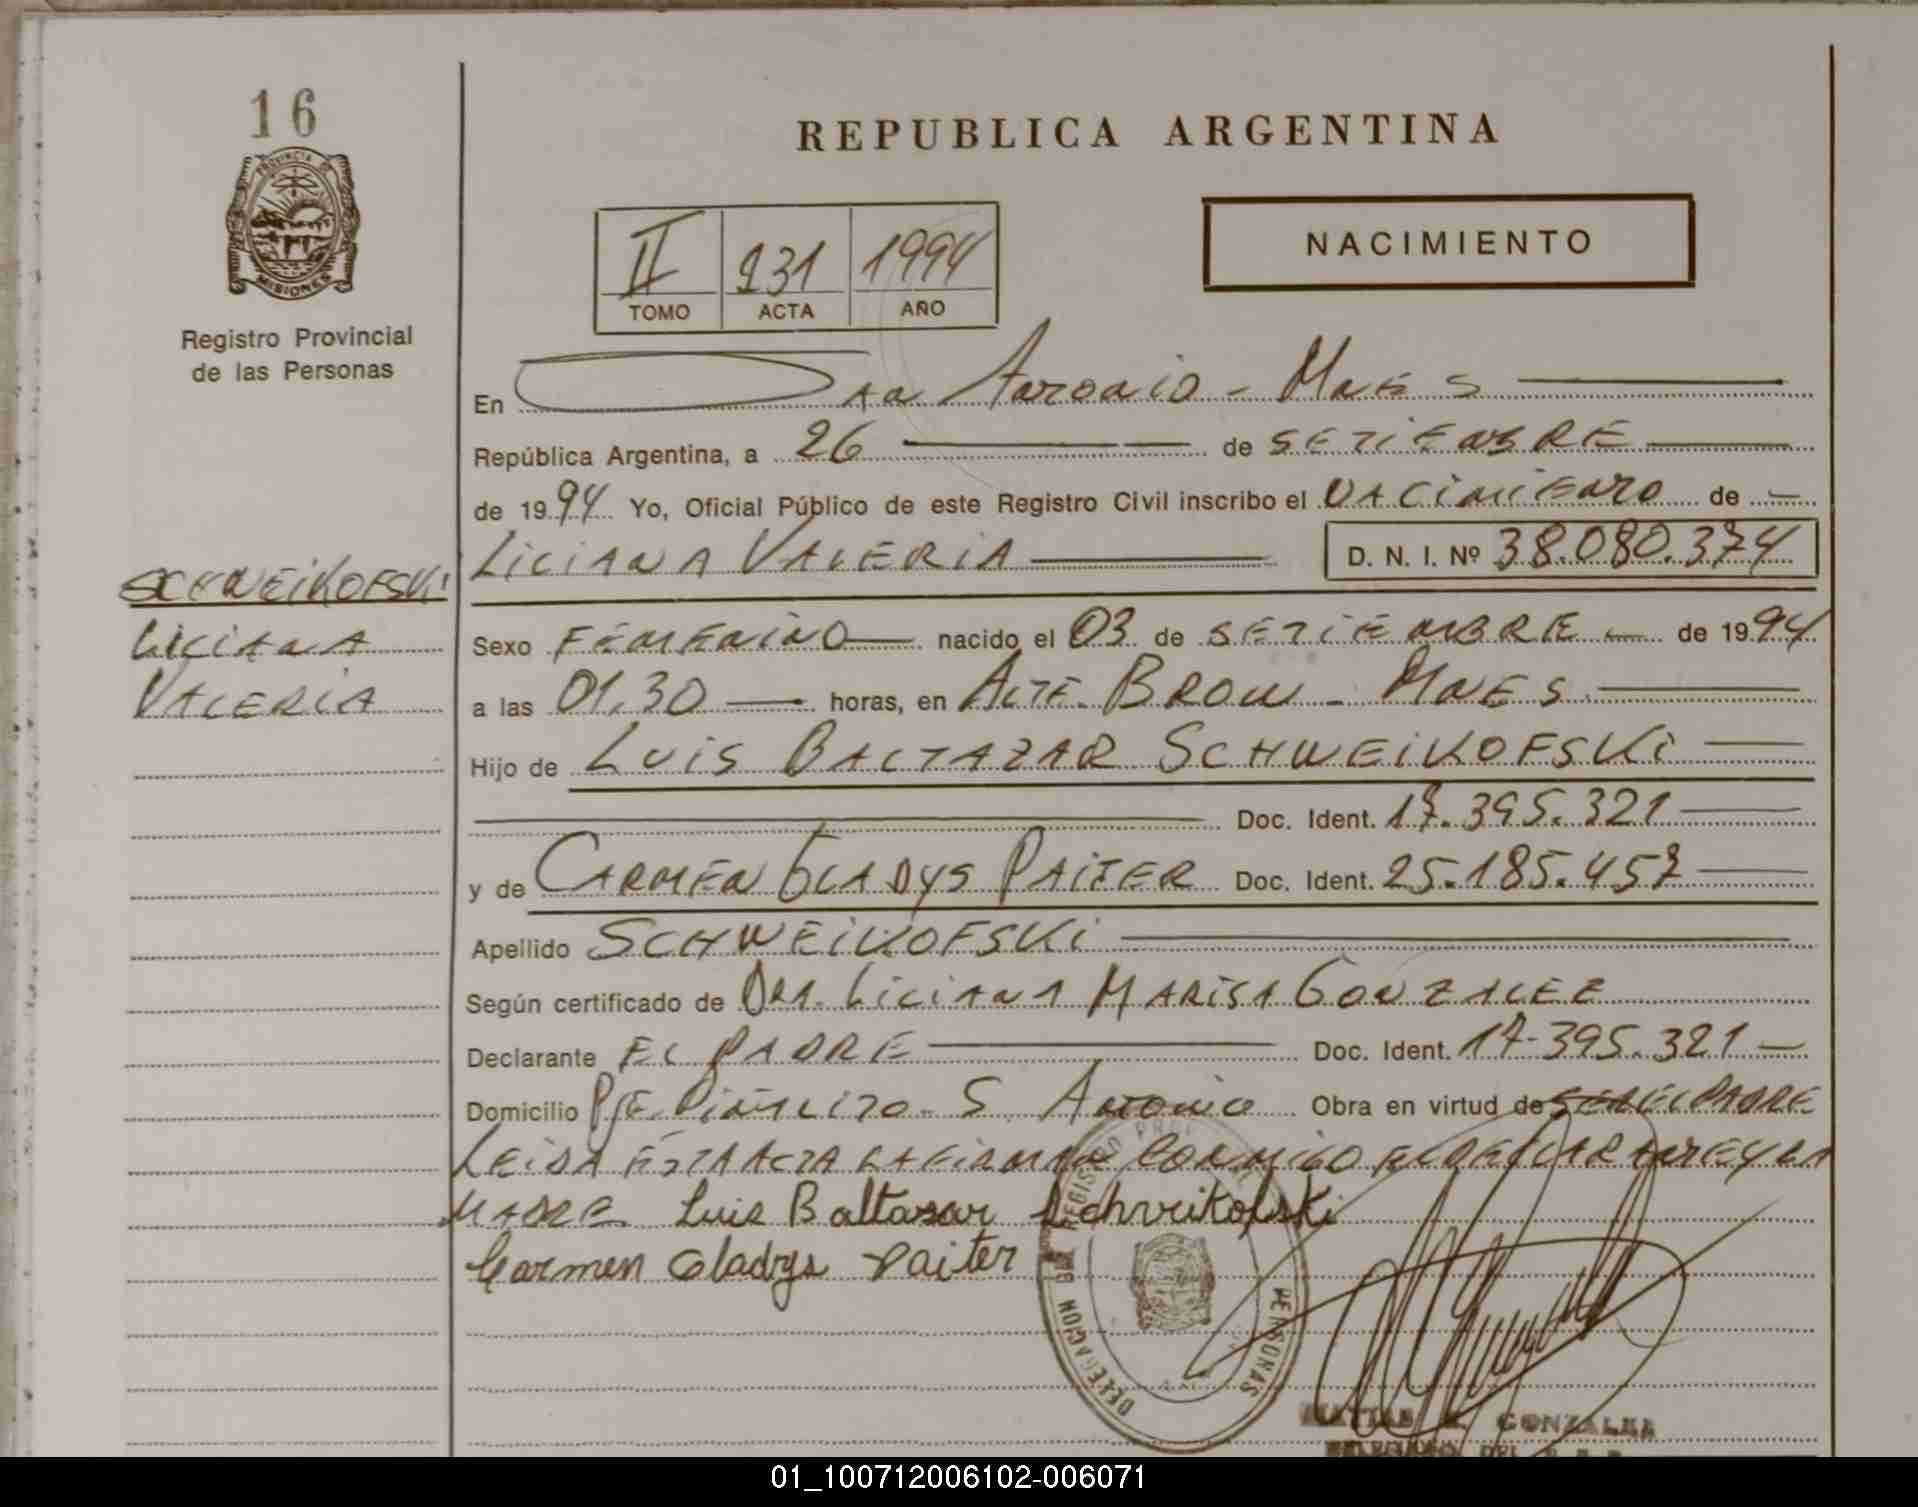 16
PROVINCIA DE
MISIONES
Registro Provincial
de las Personas
REPUBLICA ARGENTINA
NACIMIENTO
II 231 1994
TOMO ACTA AÑO
En San Antonio - Mnes
República Argentina, a 26 de SETIEMBRE
de 1994 Yo, Oficial Público de este Registro Civil inscribo el NACIMIENTO de
LILIANA VALERIA D. N. I. Nº 38.080.374
SCHWEIKOFSKI
LILIANA
VALERIA
Sexo FEMENINO nacido el 03 de SETIEMBRE de 1994
a las 01,30 horas, en ALTE. BROW - MNES
Hijo de LUIS BALTAZAR SCHWEIKOFSKI
Doc. Ident. 17.395.321
y de CARMEN GLADYS PAITER Doc. Ident. 25.185.457
Apellido SCHWEIKOFSKI
Según certificado de DRA. LILIANA MARISA GONZALEZ
Declarante EL PADRE Doc. Ident. 17.395.321
Domicilio PJE. S. ANTONIO Obra en virtud de SER EL PADRE
LEIDA ÉSTA ACTA LA FIRMAN CONMIGO EL DECLARANTE Y LA
MADRE Luis Baltasar
Carmen Gladys Paiter
DELEGACION REGISTRO PERSONAS
GONZALEZ
01_100712006102-006071